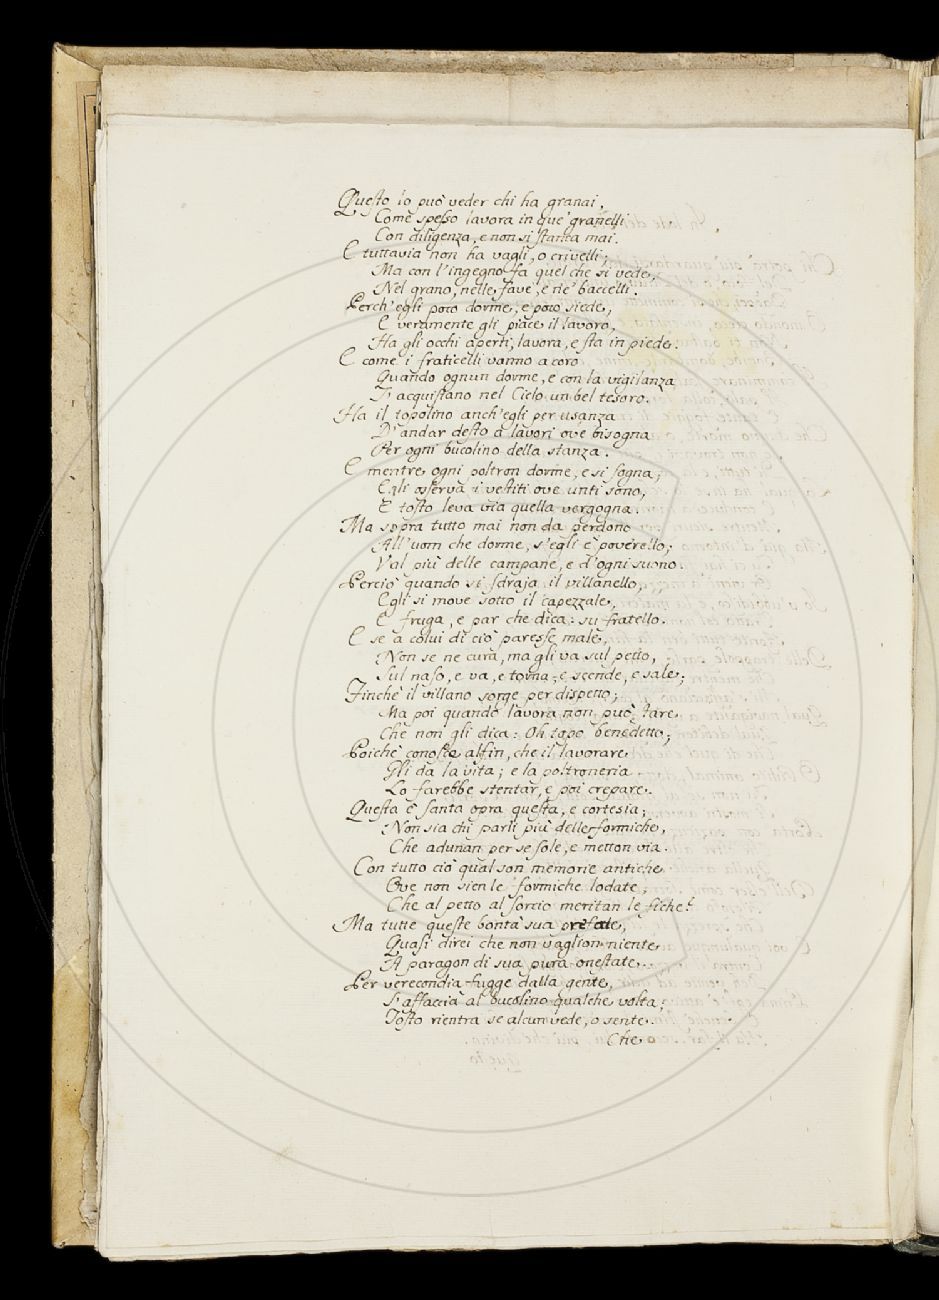 Questo lo può veder chi ha granai,
Come spesso lavora in que' granelli
Con diligenza, e non si stanca mai.
E tuttavia non ha vagli, o crivelli;
Ma con l'ingegno fa quel che si vede,
Nel grano, nelle fave, e ne' baccelli.
Perch'egli poco dorme, e poco siede,
E veramente gli piace il lavoro,
Ha gli occhi aperti, lavora, e sta in piede.
E come i fraticelli vanno a coro
Quando ognun dorme, e con la vigilanza
S'acquistano nel Cielo un bel tesoro.
Ha il topolino anch'egli per usanza
D'andar desto a lavori ove bisogna
Per ogni bucolino della stanza.
E mentre ogni poltron dorme, e si sogna;
Egli osserva i vestiti ove unti sono,
E tosto leva via quella vergogna.
Ma sopra tutto mai non da perdono
All'uom che dorme, s'egli è poverello;
Val più delle campane, e d'ogni suono.
Perciò quando si sdraja il villanello,
Egli si move sotto il capezzale,
E fruga, e par che dica: su fratello.
E se a colui di ciò paresse male,
Non se ne cura, ma gli va sul petto,
Sul naso, e va, e torna, e scende, e sale;
Finchè il villano sorge per dispetto;
Ma poi quando lavora non può fare
Che non gli dica: Oh topo benedetto;
Poichè conosce alfin, che il lavorare
Gli da la vita; e la poltroneria
Lo farebbe stentar, e poi crepare.
Questa è santa opra questa, e cortesia;
Non sia chi parli più delle formiche,
Che adunan per se sole, e metton via.
Con tutto ciò qual son memorie antiche
Ove non sien le formiche lodate;
Che al petto al sorcio meritan le fiche?
Ma tutte queste bontà sua prefate,
Quasi direi che non vaglion niente
A paragon di sua pura onestate.
Per verecondia fugge dalla gente,
S'affaccia al bucolino qualche volta;
Tosto rientra se alcun vede, o sente.
Che